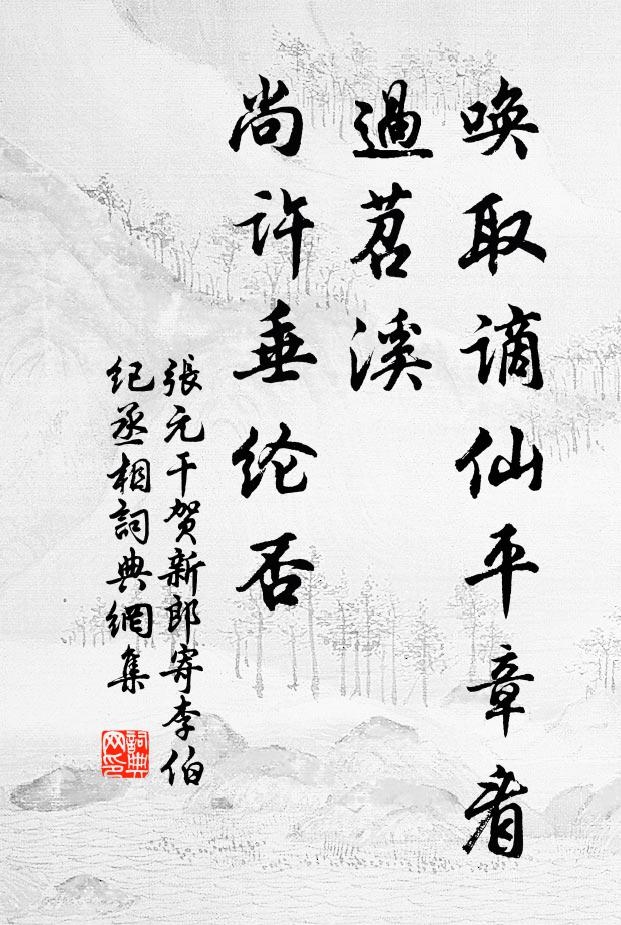 唤取谪仙平章看
過苕溪
尚许垂纶否
張元干贺新郎寄李伯
纪丞相詞典網集
詞典
网印